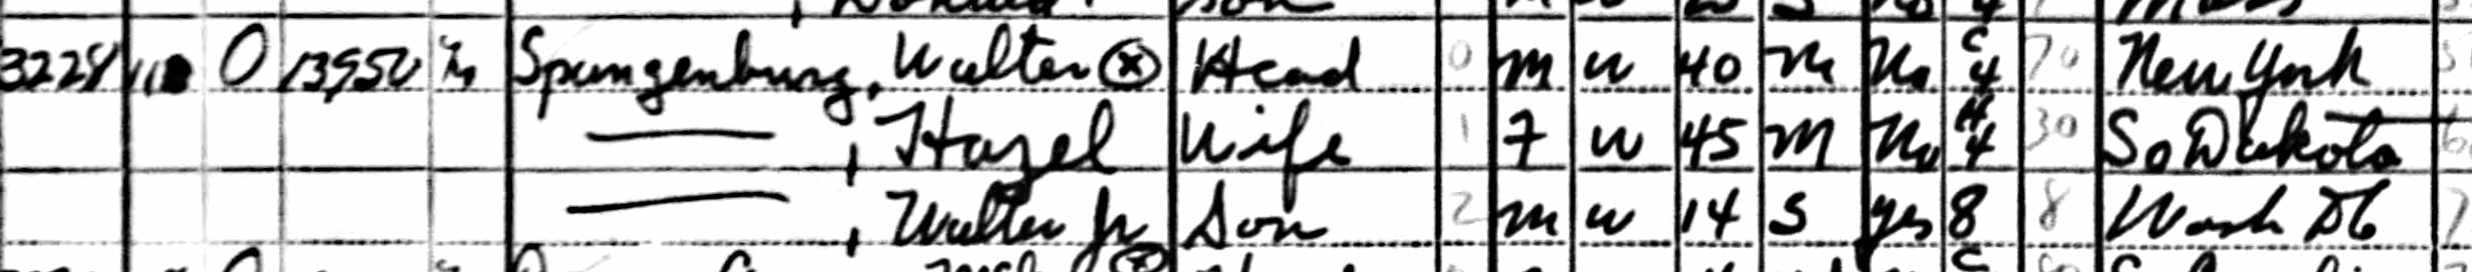 3228 O 13,950 No Spangenburg, Walter ⓧ Head 0 M W 40 M No C4 70 New York
——, Hazel Wife 1 F W 45 M No H4 30 So Dakota
——, Walter Jr Son 2 M W 14 S yes 8 8 Wash DC